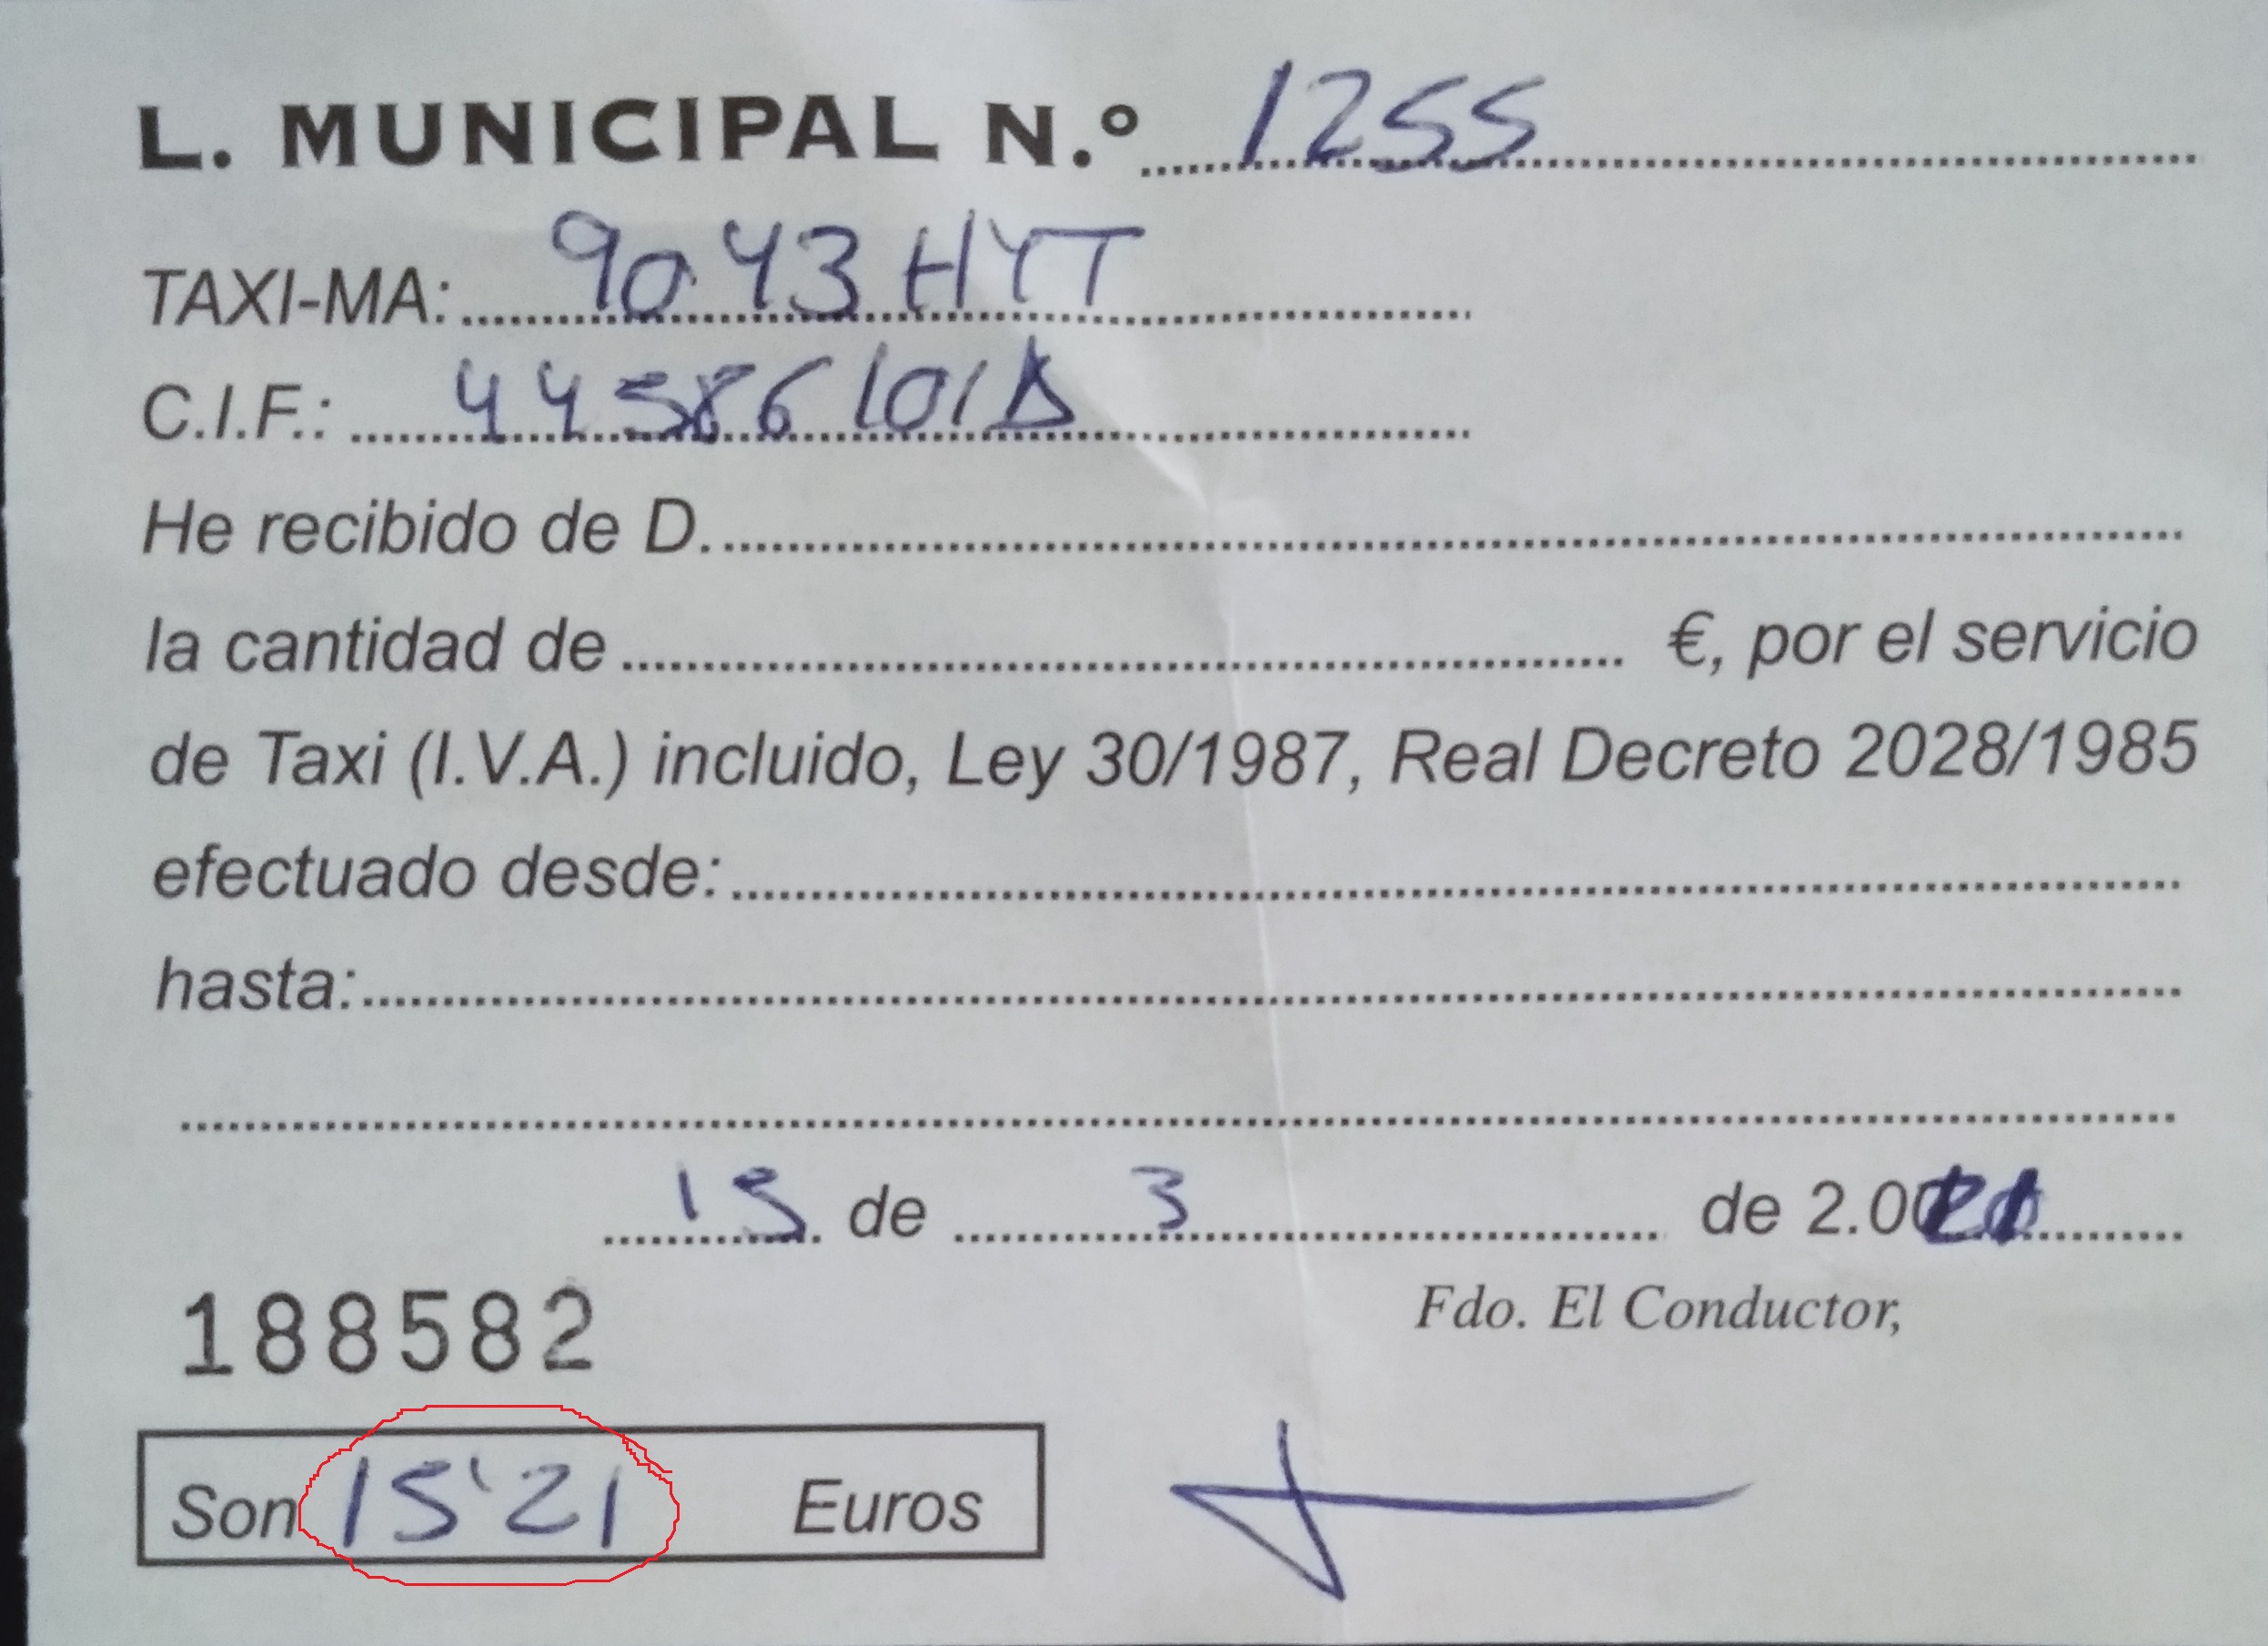 L. MUNICIPAL N.º 1255
TAXI-MA: 9043 HYT
C.I.F.: 44586101A
He recibido de D.
la cantidad de € , por el servicio
de Taxi (I.V.A.) incluido, Ley 30/1987, Real Decreto 2028/1985
efectuado desde:
hasta:
15 de 3 de 2.0
188582
Fdo. El Conductor,
Son 15'21 Euros